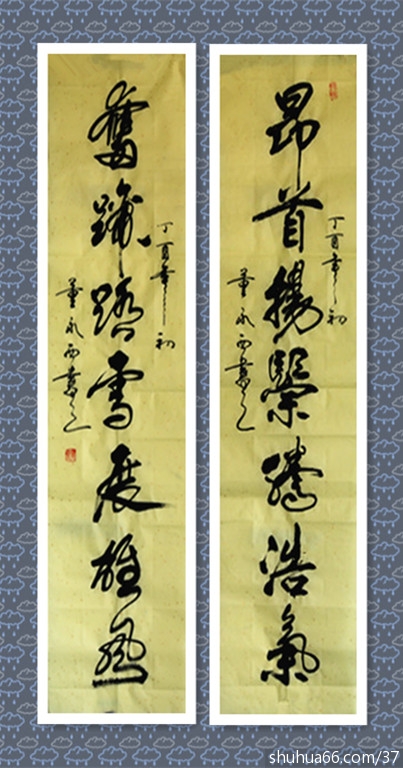 昂首揚鬃騰浩氣
丁酉年初
董永西書之
奮蹄踏雪展雄風
丁酉年初
董永西書之
shuhua66.com/37